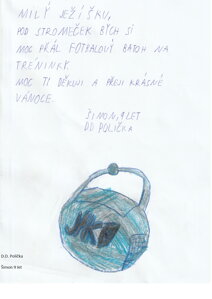 MILÝ JEŽÍŠKU,
POD STROMEČEK BYCH SI
MOC PŘÁL FOTBALOVÝ BATOH NA
TRÉNINKY.
MOC TI DĚKUJI A PŘEJI KRÁSNÉ
VÁNOCE.
ŠIMON, 9 LET
DD POLIČKA
D.D. Polička
Šimon 9 let